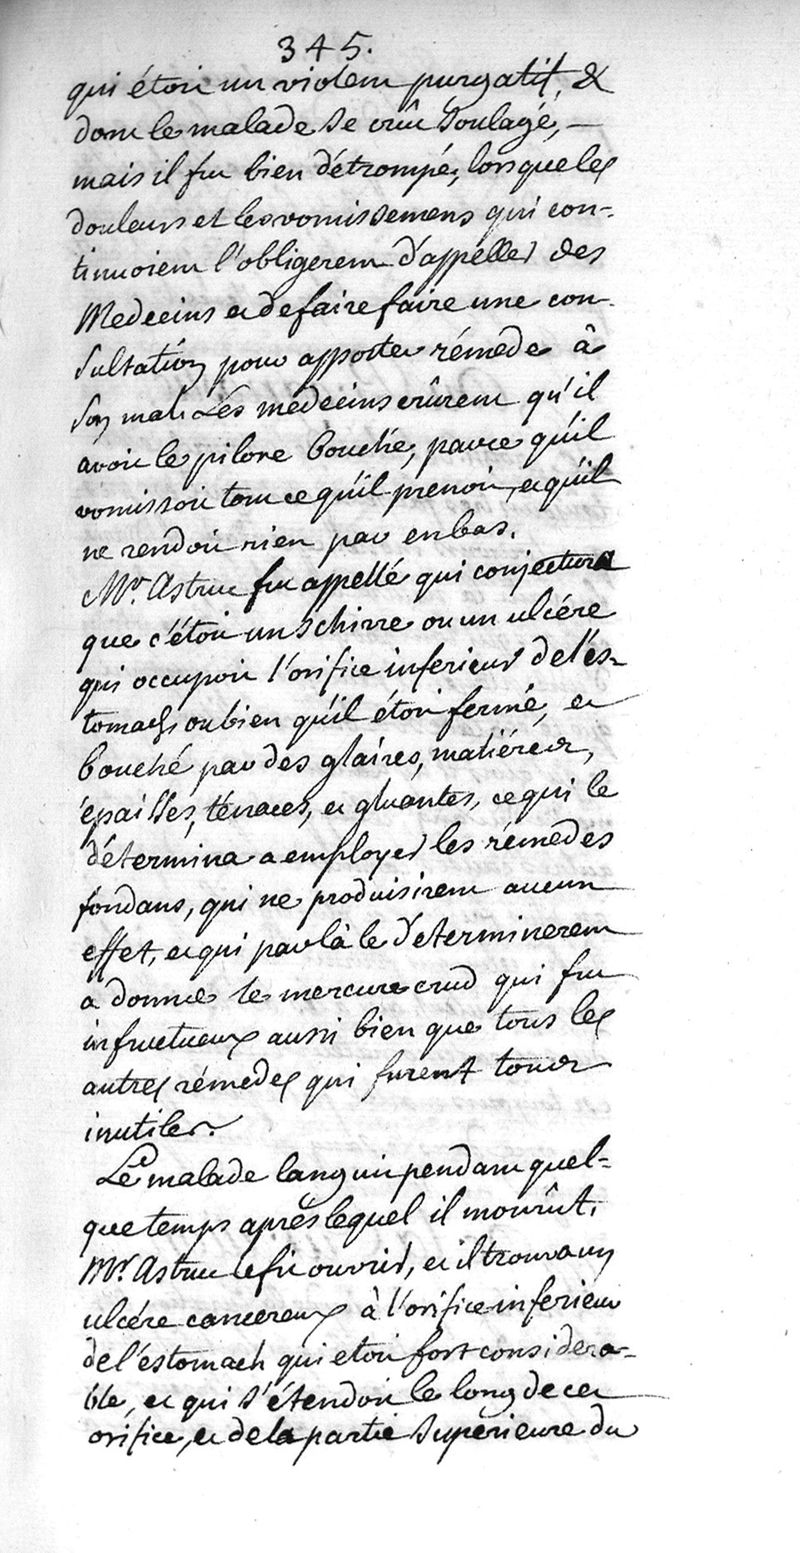 345.
qui étoit un violent purgatif, &
dont le malade se crût soulagé, —
mais il fut bien détrompé, lorsque les
douleurs et les vomissemens qui con-
tinuoient l'obligerent d'appeller des
Medecins et de faire faire une con-
sultation pour apporter réméde à
son mal. Les medecins crûrent qu'il
avoit le pilore bouché, parce qu'il
vomissoit tout ce qu'il prenoit, et qu'il
ne rendoit rien par en bas.
Mr. Astruc fut appellé qui conjectura
que c'étoit un schirre ou un ulcére
qui occupoit l'orifice inferieur de l'es-
tomach ou bien qu'il étoit fermé, et
bouché par des glaires, matiéres,
épaisses, ténaces, et gluantes, ce qui le
détermina a employer les rémedes
fondans, qui ne produisirent aucun
effet, et qui par là le déterminerent
a donner le mercure crud qui fut
infructueux aussi bien que tous les
autres rémedes qui furent touts
inutiles.
Le malade languit pendant quel-
que temps aprés lequel il mourût.
Mr. Astruc le fit ouvrir, et il trouva un
ulcére cancereux à l'orifice inferieur
de l'éstomach qui etoit fort considera-
ble, et qui s'étendoit le long de cet
orifice, et de la partie supérieure du